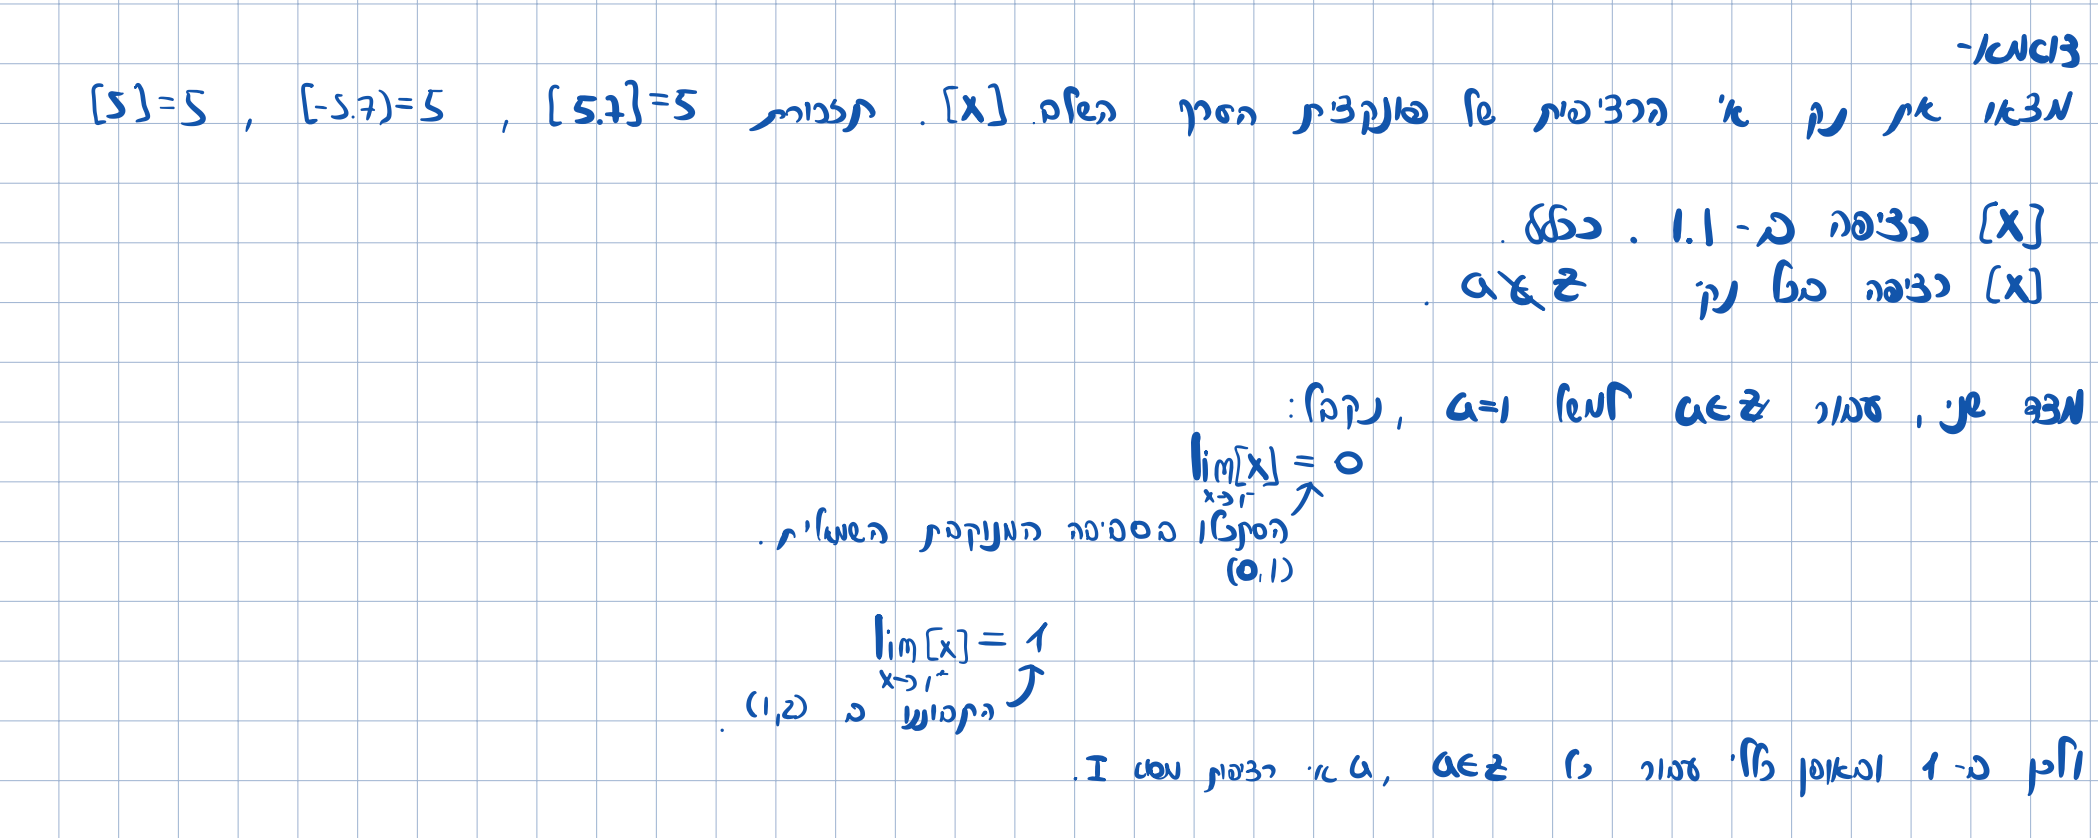 דוגמא-
מצאו את נק אי הרציפות של פונקצית הערך השלם [x]. תזכורת [5.7]=5 , [-5.7)=5 , [5]=5
[x] רציפה ב- 1.1 . ככלל.
[x] רציפה בכל נק a∉Z .
מצד שני, עבור a∈Z למשל a=1, נקבל:
lim[x] = 0
x→1⁻
הסתכלו בסביבה המנוקבת השמאלית.
(0,1)
lim[x] = 1
x→1⁺
התבוננו ב (1,2) .
ולכן ב-1 ובאופן כללי עבור כל a∈Z, a אי רציפות מסוג I.